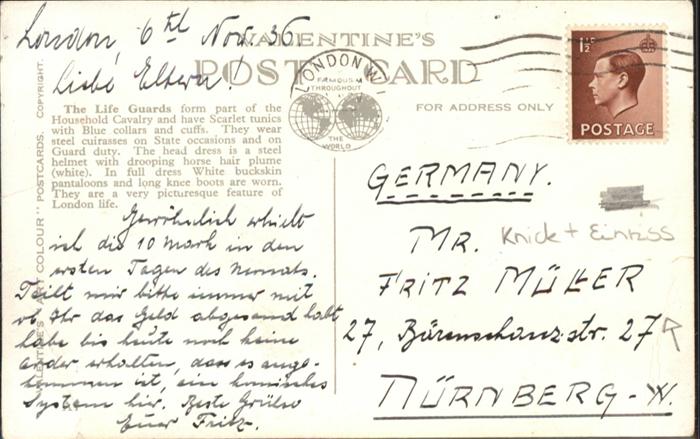 London, 6th Nov. 36
VALENTINE'S
POST CARD
Liebe Eltern!
LONDON W.1
FAMOUS
THROUGHOUT
THE
WORLD
FOR ADDRESS ONLY
1½D
POSTAGE
COPYRIGHT.
VALENTINE'S "ART COLOUR" POSTCARDS.
The Life Guards form part of the
Household Cavalry and have Scarlet tunics
with Blue collars and cuffs. They wear
steel cuirasses on State occasions and on
Guard duty. The head dress is a steel
helmet with drooping horse hair plume
(white). In full dress White buckskin
pantaloons and long knee boots are worn.
They are a very picturesque feature of
London life.
Gewöhnlich erhielt
ich die 10 Mark in den
ersten Tagen des Monats.
Teilt mir bitte immer mit
ob Ihr das Geld abgesand habt
habe bis heute noch keine
order erhalten, dass es ange-
kommen ist, ein komisches
System hier. Beste Grüße
Euer Fritz.
GERMANY.
Knick + Einriss
MR.
FRITZ MÜLLER
27, Bärenschanzstr. 27
NÜRNBERG-W.